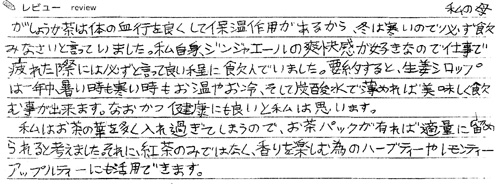 レビュー review 私の母
がしょうが茶は体の血行を良くして保温作用があるから、冬は寒いので必ず飲
みなさいと言っていました。私自身ジンジャエールの爽快感が好きなので仕事で
疲れた際には必ずと言って良い程に飲んでいました。要約すると、生姜シロップ
は一年中、暑い時も寒い時もお温やお冷、そして炭酸水で薄めれば美味しく飲
む事が出来ます。なおかつ健康にも良いと私は思います。
私はお茶の葉を多く入れ過ぎてしまうので、お茶パックが有れば適量に留め
られると考えました。それに、紅茶のみではなく、香りを楽しむ為のハーブティーやレモンティー
アップルティーにも活用できます。